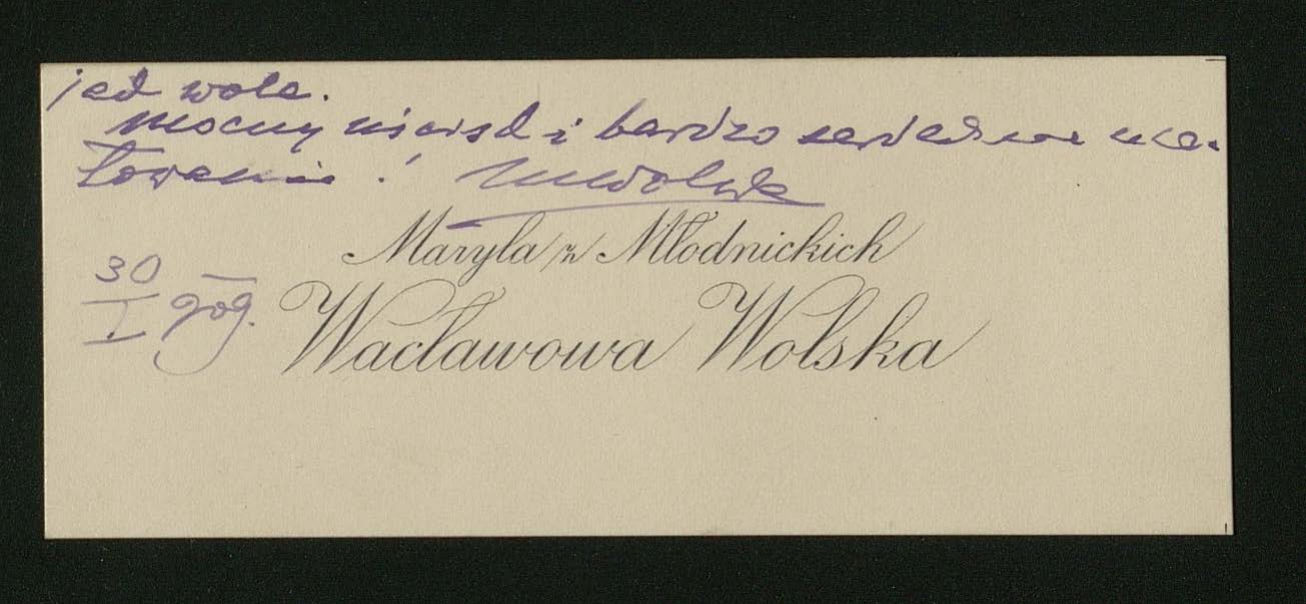 jed wole.
mocny uścisk i bardzo serdeczne uca-
łowania!
Maryla z Młodnickich
30
I 909.
Wacławowa Wolska